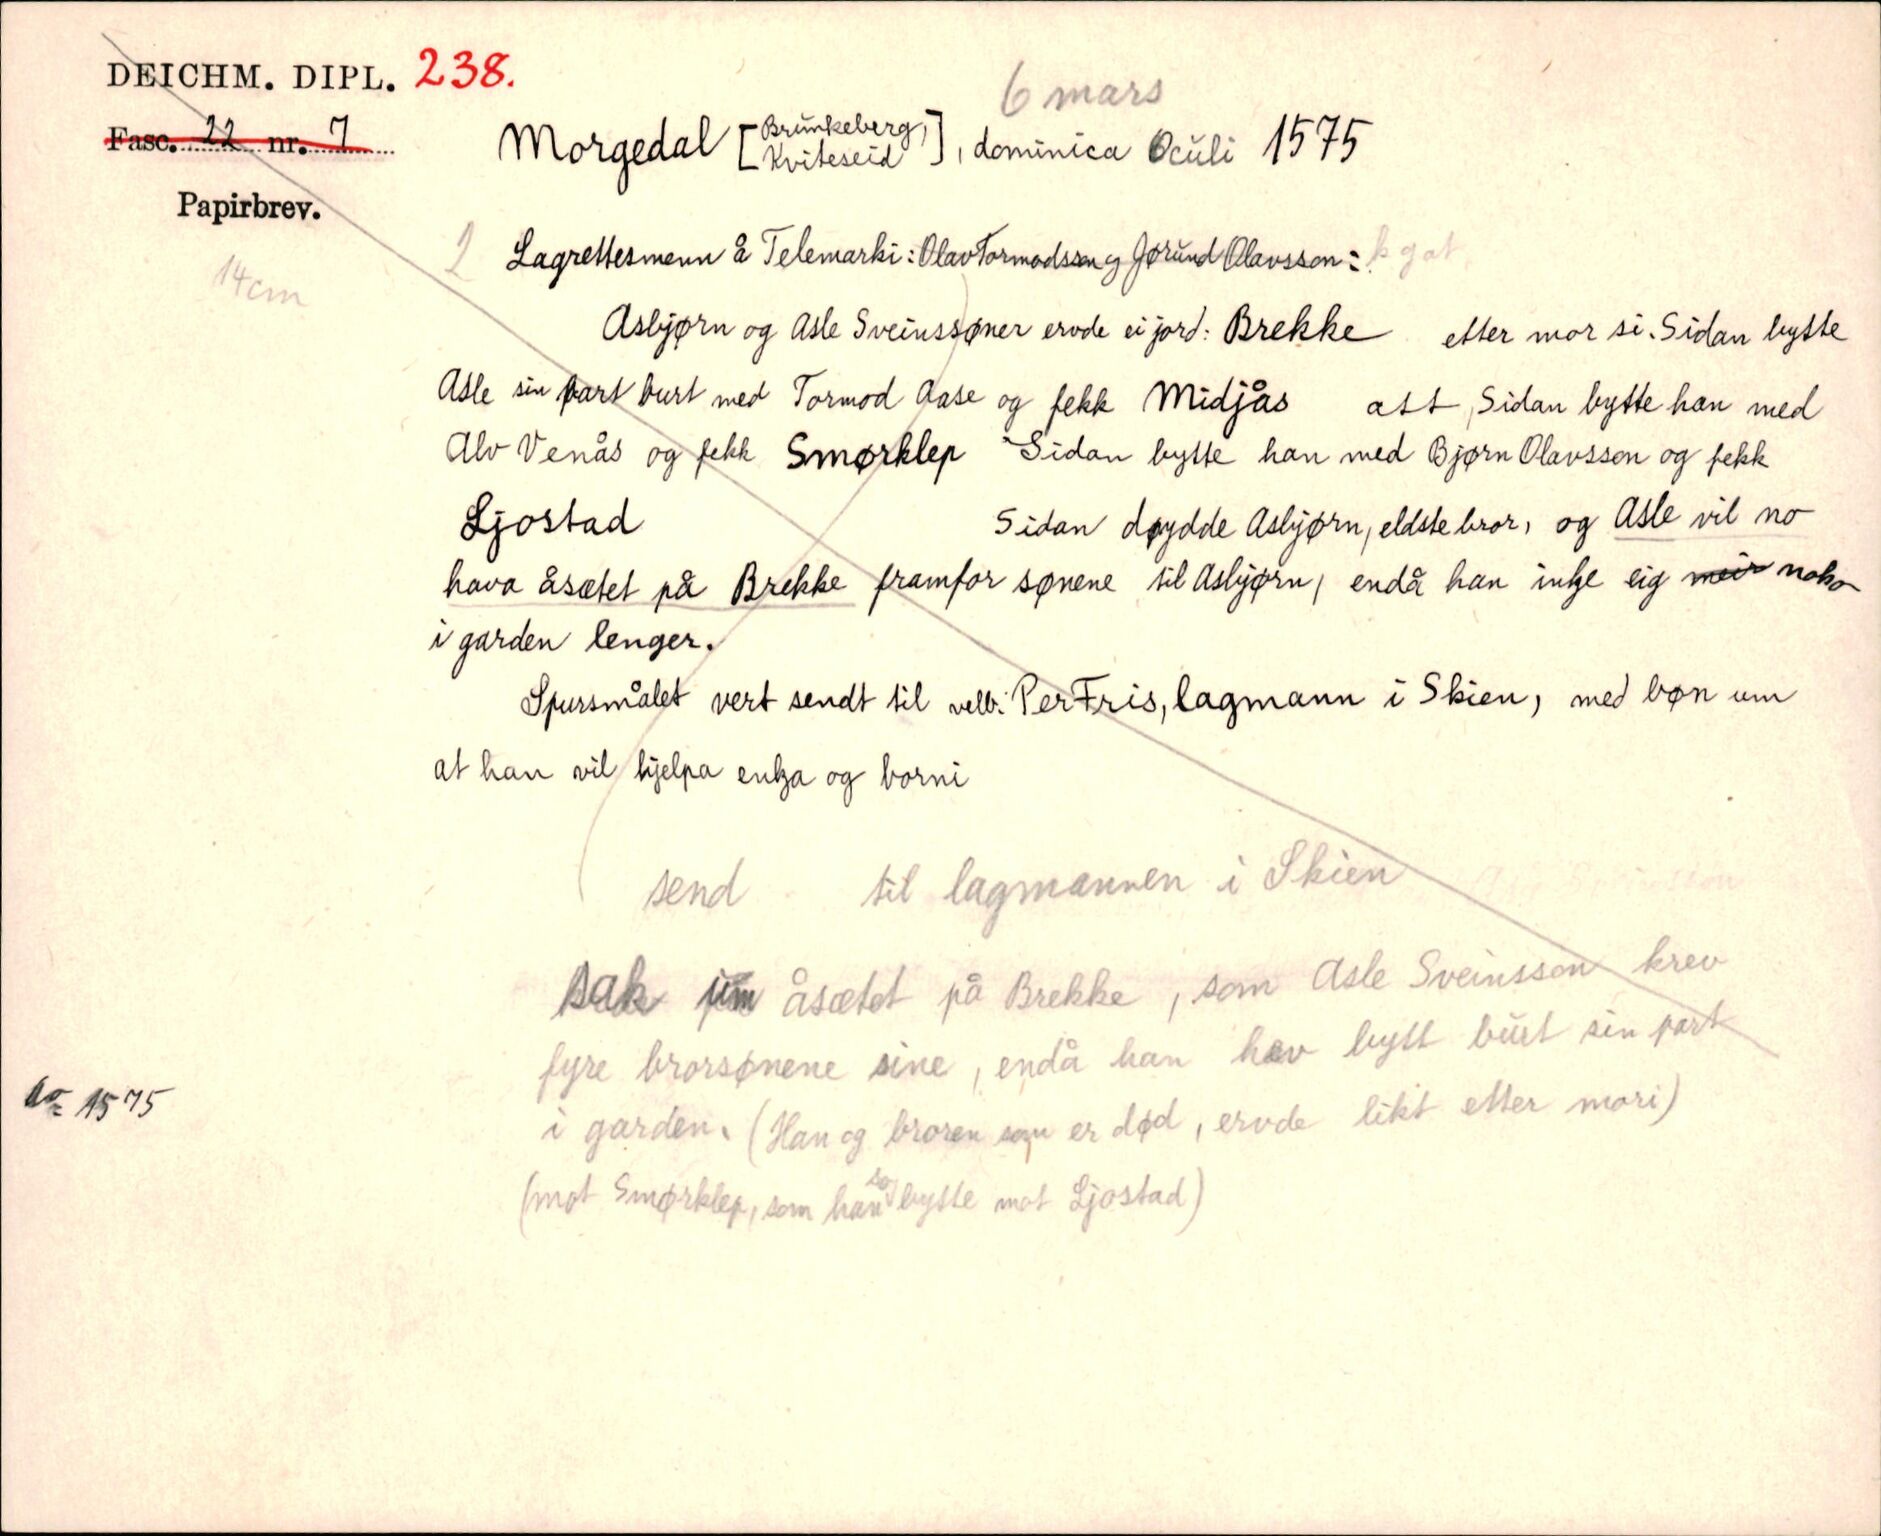 DEICHM. DIPL. 238.
6 mars
Fasc. 22 nr. 7
Morgedal [Brunkeberg, Kviteseid], dominica Oculi 1575
Papirbrev.
14cm
2 Lagrettesmenn å Telemarki: Olav Tormodsson og Jørund Olavsson:
Asbjørn og Asle Sveinssøner ervde ei jord: Brekke etter mor si. Sidan bytte
Asle sin part burt med Tormod Aase og fekk Midjås att, Sidan bytte han med
Alv Venås og fekk Smørklep Sidan bytte han med Bjørn Olavsson og fekk
Ljostad Sidan døydde Asbjørn, eldste bror, og Asle vil no
hava åsætet på Brekke framfor sønene til Asbjørn, endå han inkje eig meir noko
i garden lenger.
Spursmålet vert sendt til velb. Per Fris, lagmann i Skien, med bøn um
at han vil hjelpa enkja og borni
send til lagmannen i Skien
sak um åsætet på Brekke, som Asle Sveinsson krev
fyre brorsønene sine, endå han hev bytt burt sin part
i garden. (Han og broren som er død, ervde likt etter mori)
(mot Smørklep, som han so bytte mot Ljostad)
ao 1575